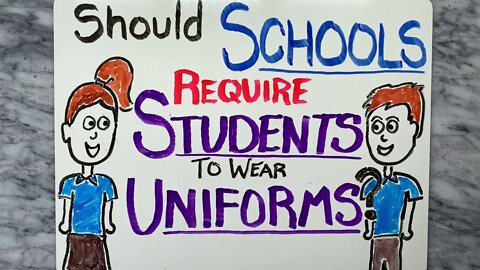 Should SCHOOLS
REQUIRE
STUDENTS
TO WEAR
UNIFORMS?